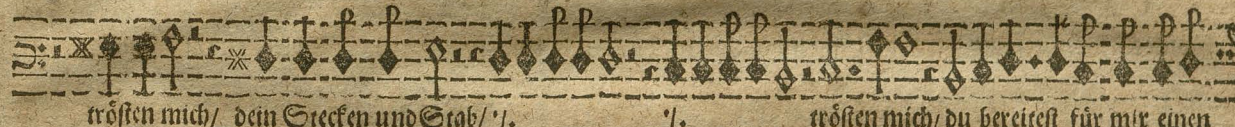 tröſten mich/ dein Stecken und Stab/ ·/. ·/. tröſten mich/ du bereiteſt für mir einen